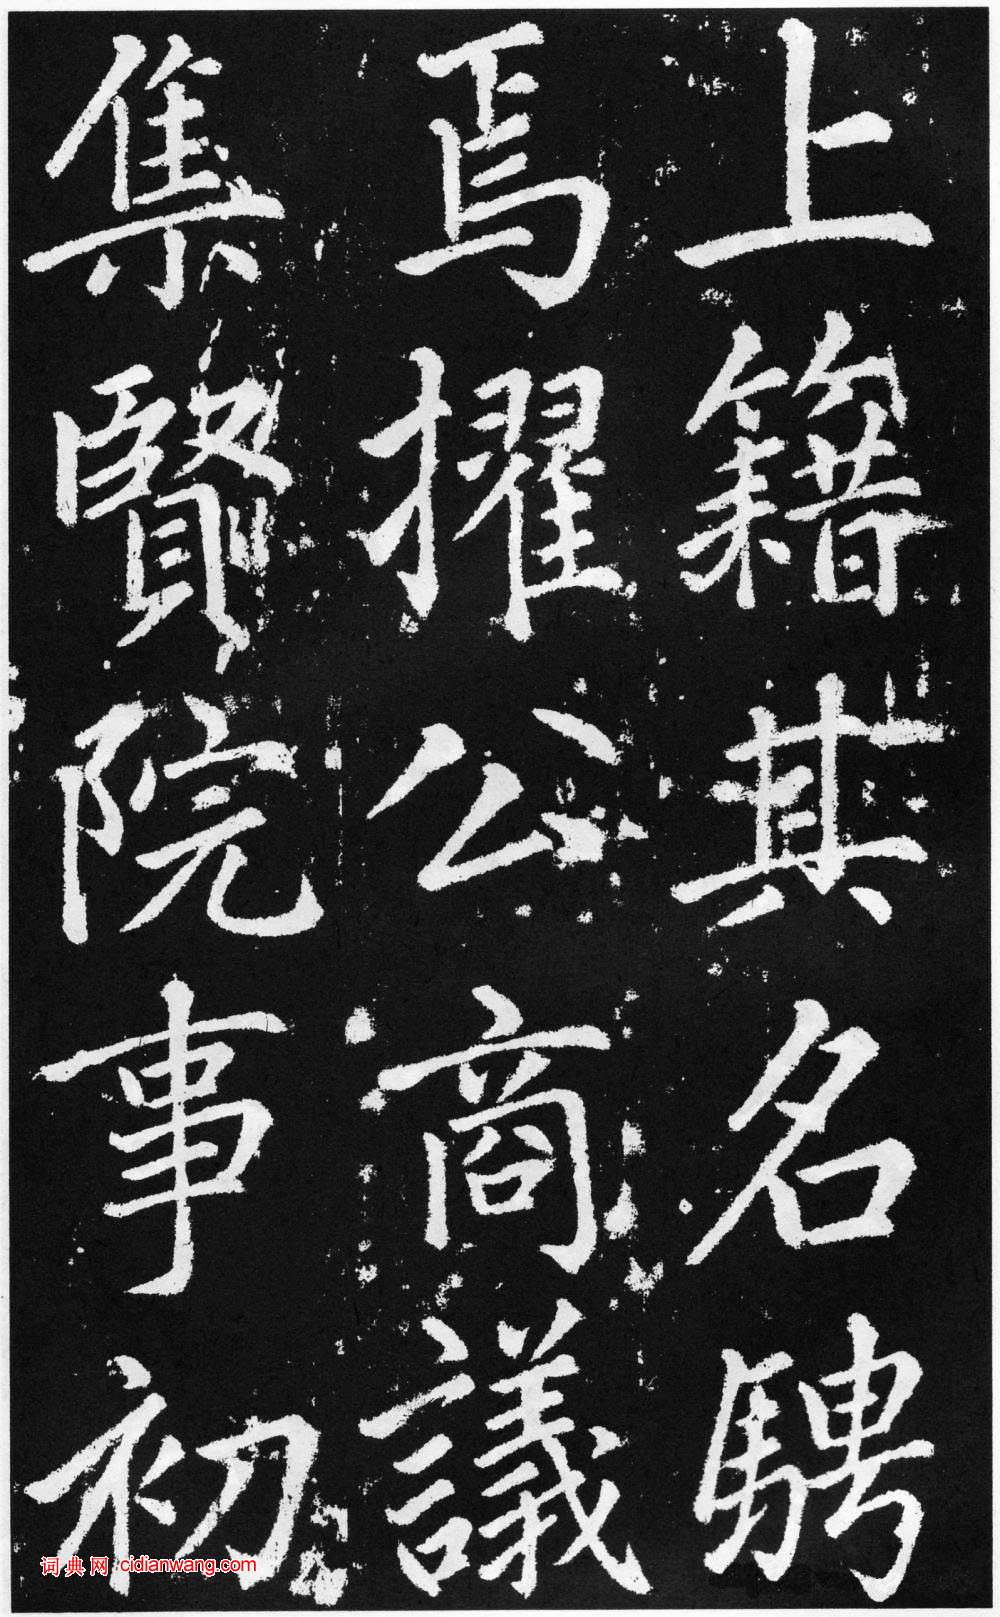 上籍其名騁
焉擢公商議
集賢院事初
词典网 cidianwang.com